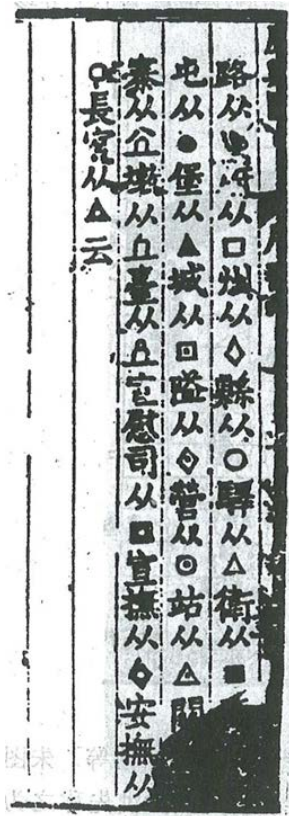 路从府从□州从◇縣从○驛从△衛从■
屯从●堡从▲城从回隘从◈營从◎站从◬關
寨从墩从臺从宣慰司从宣撫从安撫从
長官从△云